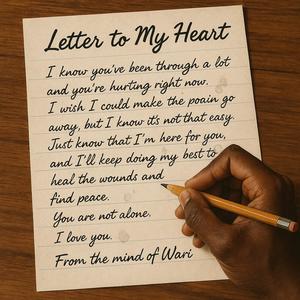 Letter to My Heart
I know you've been through a lot
and you're hurting right now.
I wish I could make the poain go
away, but I know it's not that easy.
Just know that I'm here for you,
and I'll keep doing my best to
heal the wounds and
find peace.
You are not alone.
I love you.
From the mind of Wari